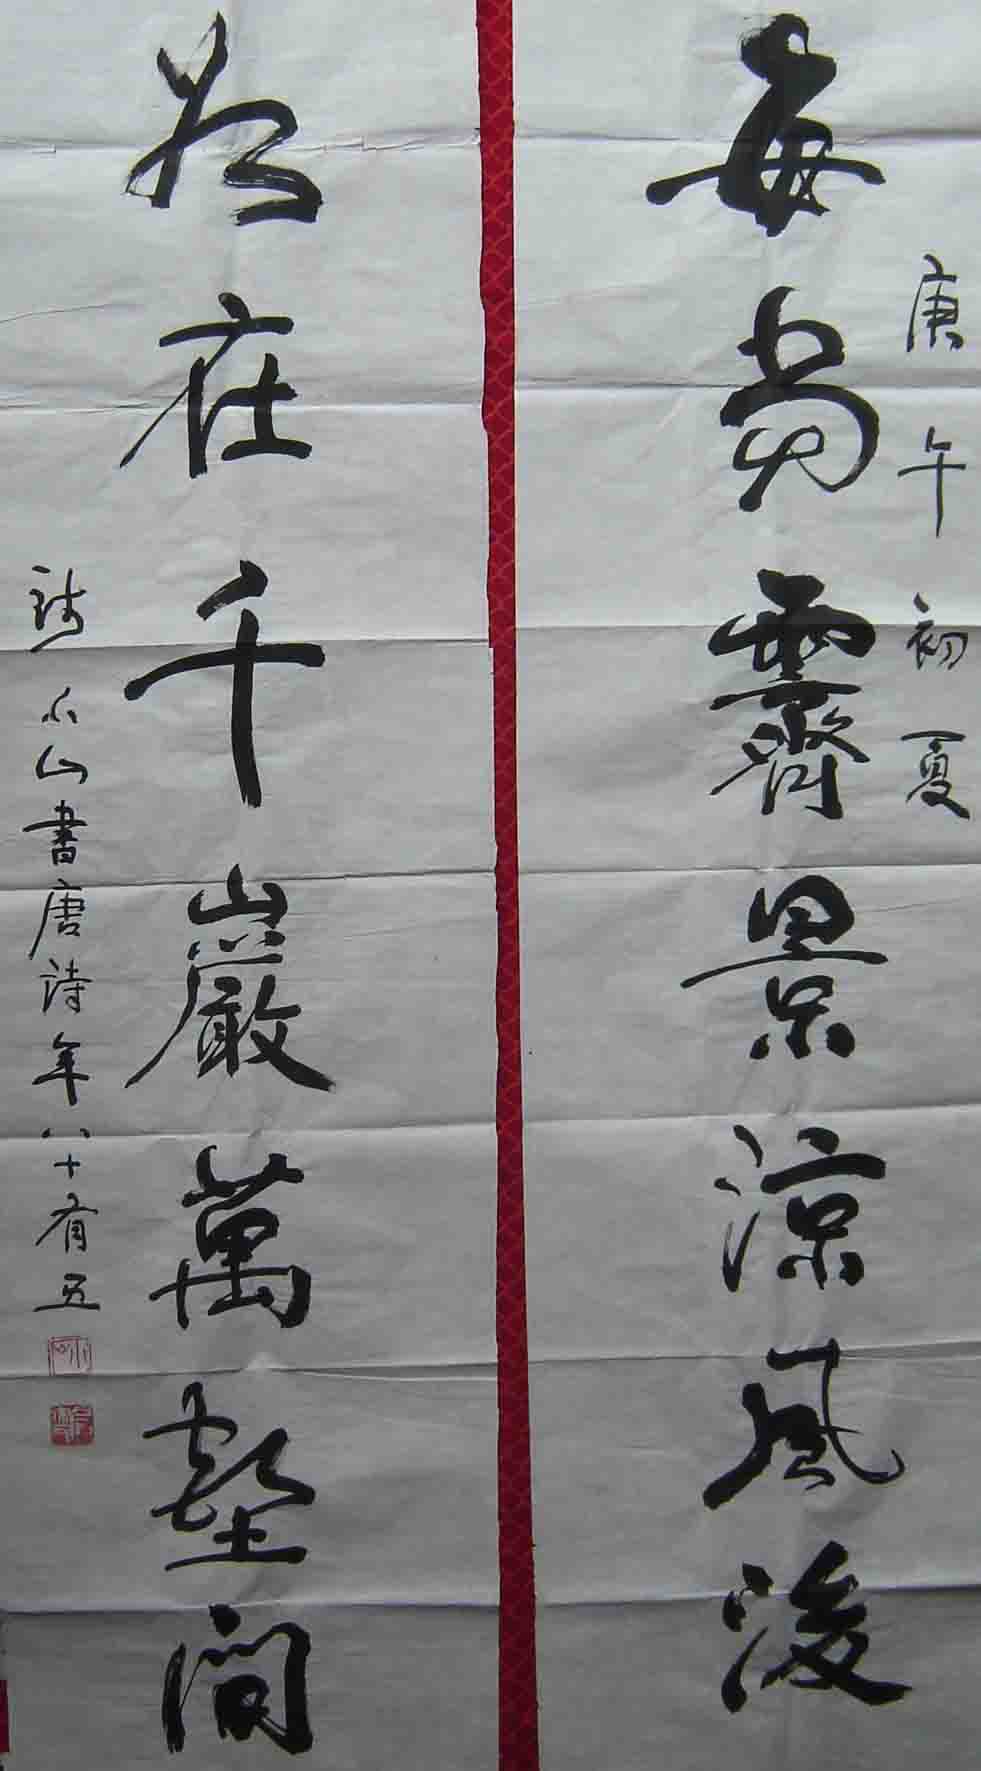 庚午初夏
每當霽景涼風後
如在千巖萬壑間
錢小山書唐詩年八十有五